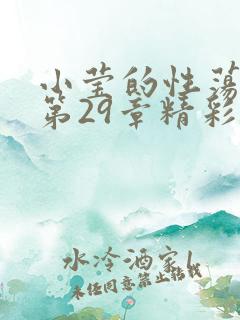 小莹的性荡
第29章精彩
水冷酒家l
未经同意禁止转载